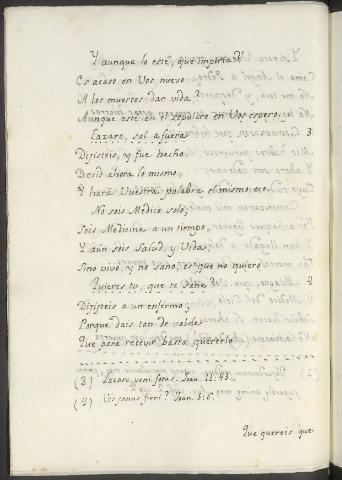 Y aunque lo esté, que importa?
Es acaso en Vos nuevo
A los muertos dar vida?
Aunque esté en el sepulcro en Vos espero.
Lazare, sal a fuera 3
Dijisteis, y fue hecho.
Decid ahora lo mismo,
Y hará Vuestra palabra el mismo eco.
No sois Médico solo,
Sois Medicina a un tiempo,
Y aún sois salud, y Vida
Sino vivo, y no sano, es que no quiero
Quieres tu, que te sane 4
Dijisteis a un enfermo;
Porque dais tan de valde
Que para recivir basta quererlo
(3) Lazare veni foras. Joan. 11. 43.
(4) Vis sanus fieri? Joan. 5. 6.
Que quereis que